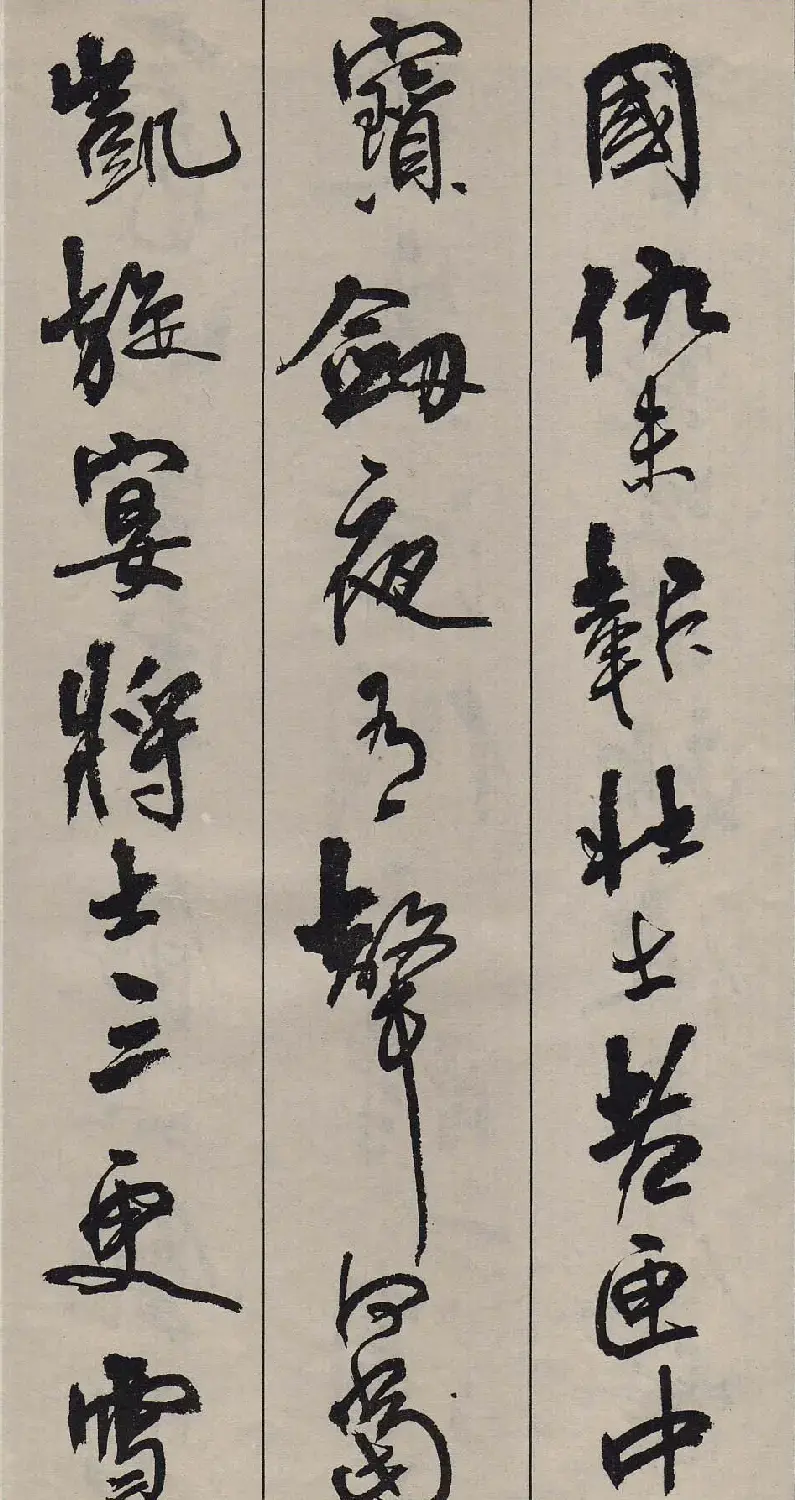 國仇未報壯士老匣中
寶劔夜有聲何當
凱旋宴將士三更雪